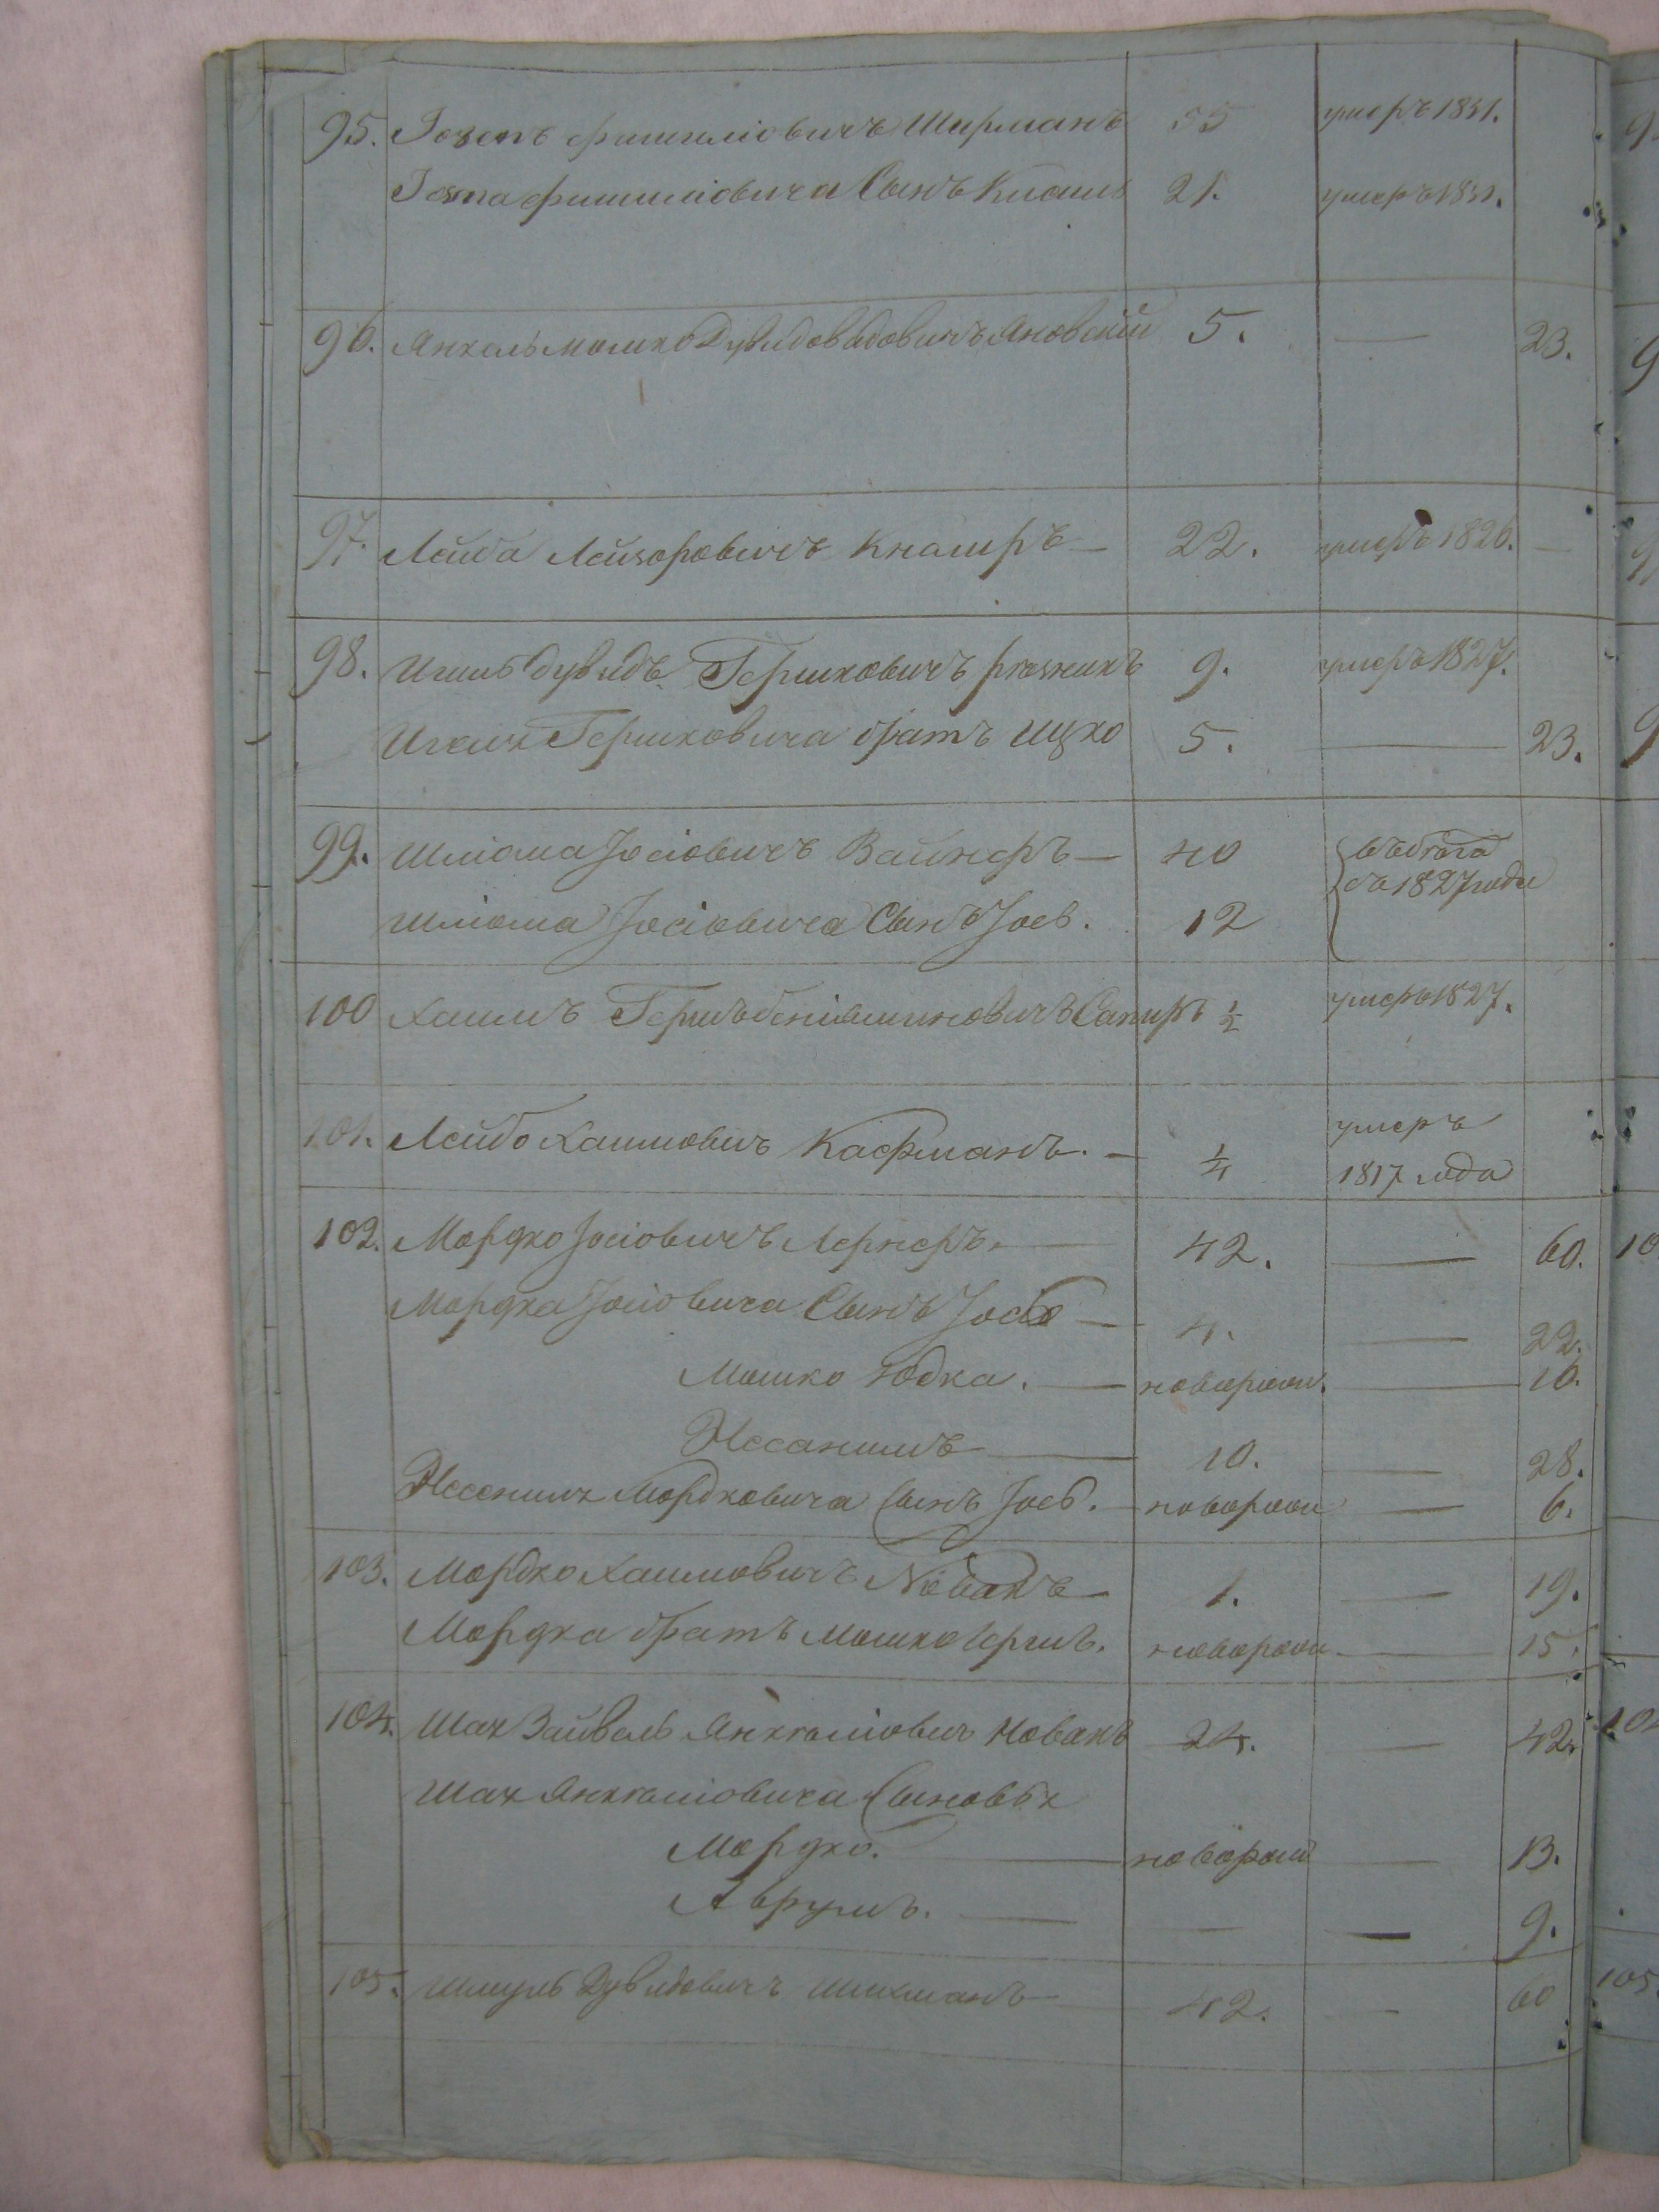 95. Іозепъ Фишиліовичъ Ширманъ 55 умеръ 1831.
Фишиліовича Сынъ Кисиль 21. умеръ 1831.
96. Янкель Мошко Дувидовичъ Яновскій 5. — 23.
97. Лейба Лейзоровичъ Кнапиръ — 22. умеръ 1826. —
98. Ицикъ Дувидъ Гершковичъ 9. умеръ 1827.
Гершковича братъ Ицко 5. — 23.
99. Шліома Іосіовичъ Вайнеръ — 40 въ бѣгахъ
съ 1827 года
Шліома Іосіовича Сынъ Іось. 12
100 Хаимъ Гершъ Беніяминовичъ Сапиръ ½ умеръ 1827.
101. Лейбо Хаимовичъ Кафманъ. — ¼ умеръ
1817 года
102. Мордко Іосіовичъ Лернеръ. — 42. — 60.
Мордка Іосіовича Сынъ Іось — 4. — 22.
Мошко Юдка. — новорожд. — 16.
Нссанимъ — 10. — 28.
Мордковича Сынъ Іось. — новорожд — 6.
103. Мордко Хаимовичъ Новакъ — 1. — 19.
Мордка братъ Мошко Гершъ. новорожд. — 15.
104. Шая Зайвель Янкеліовичъ Новакъ 24. — 42.
Шая Янкеліовича Сыновья
Мордко. — новорожд — 13.
Аврумъ. — — — 9.
105. Шмуль Дувидовичъ Шихманъ — 42. — 60